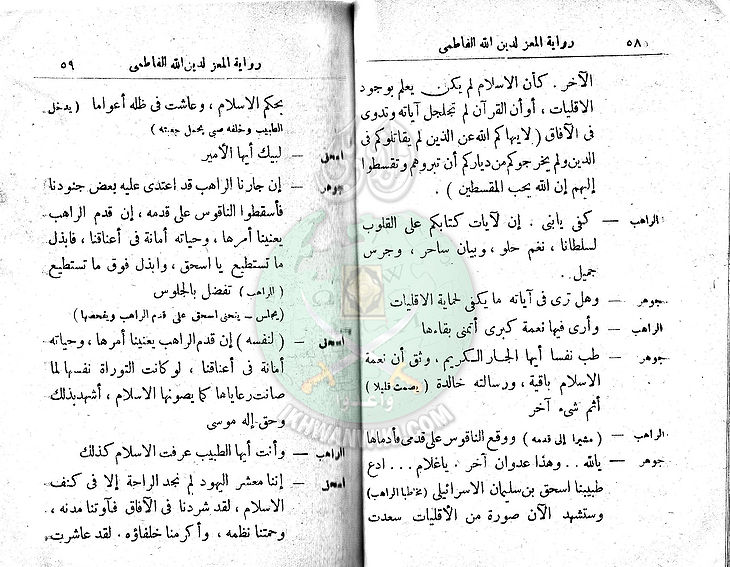 ٥٨ رواية المعز لدين الله الفاطمى
الآخر. كأن الاسلام لم يكن يعلم بوجود
الاقليات ، أو أن القرآن لم تجلجل آياته وتدوى
فى الآفاق ( لا ينهاكم الله عن الذين لم يقاتلوكم فى
الدين ولم يخرجوكم من دياركم أن تبروهم وتقسطوا
إليهم إن الله يحب المقسطين ) .
الراهب — كفى يابنى . إن لآيات كتابكم على القلوب
لسلطانا ، نغم حلو ، وبيان ساحر ، وجرس
جميل .
جوهر — وهل ترى فى آياته ما يكفى لحماية الاقليات
الراهب — وأرى فيها نعمة كبرى أتمنى بقاءها
جوهر — طب نفسا أيها الجار الكريم ، وثق أن نعمة
الاسلام باقية ، ورسالته خالدة ( يصمت قليلا )
أثم شىء آخر
الراهب — ( مشيرا إلى قدمه ) ووقع الناقوس على قدمى فأدماها
جوهر — يالله .. وهذا عدوان آخر . ياغلام ... ادع
طبيبنا اسحق بن سليمان الاسرائيلى ( مخاطبا الراهب )
وستشهد الآن صورة من الأقليات سعدت
رواية المعز لدين الله الفاطمى ٥٩
بحكم الاسلام ، وعاشت فى ظله أعواما ( يدخل
الطبيب وخلفه صبى يحمل جعبته )
اسحق — لبيك أيها الأمير
جوهر — إن جارنا الراهب قد اعتدى عليه بعض جنودنا
فأسقطوا الناقوس على قدمه ، إن قدم الراهب
يعنينا أمرها ، وحياته أمانة فى أعناقنا ، فابذل
ما تستطيع يا اسحق ، وابذل فوق ما تستطيع
( الراهب ) تفضل بالجلوس
( يجلس — ينحنى اسحق على قدم الراهب ويفحصها )
اسحق — ( لنفسه ) إن قدم الراهب يعنينا أمرها ، وحياته
أمانة فى أعناقنا ، لو كانت التوراة نفسها لما
صانت رعاياها كما يصونها الاسلام ، أشهد بذلك
وحق إله موسى
الراهب — وأنت أيها الطبيب عرفت الاسلام كذلك
اسحق — إننا معشر اليهود لم نجد الراحة إلا فى كنف
الاسلام ، لقد شردنا فى الآفاق فآوتنا مدنه ،
وحمتنا نظمه ، وأكرمنا خلفاؤه . لقد عاشرت
IKHWANWIKI.COM